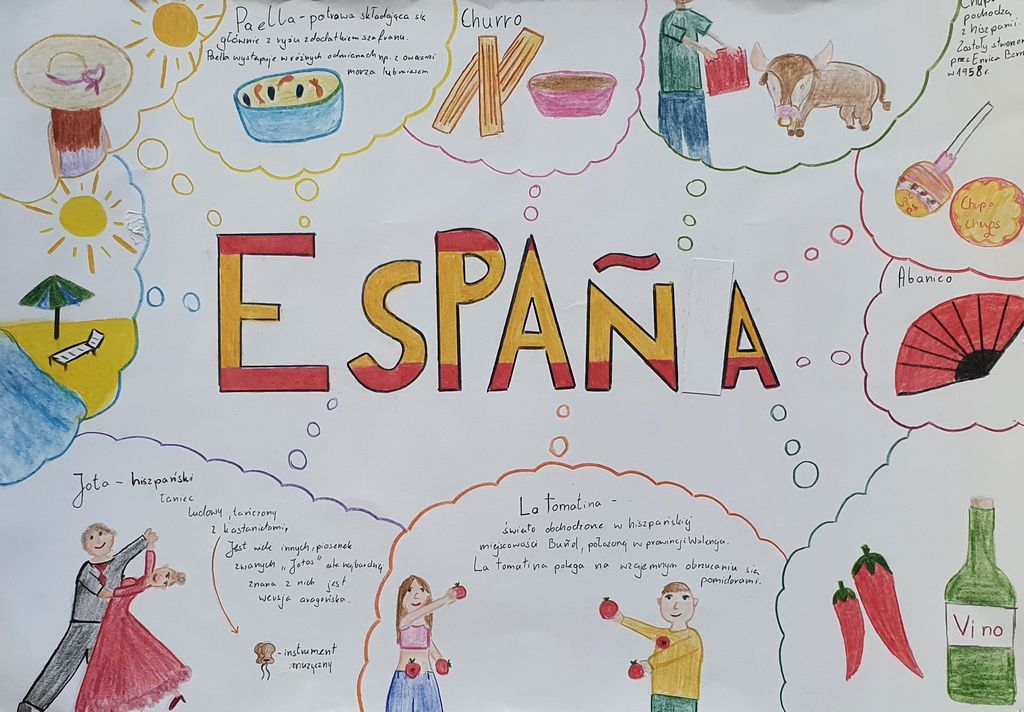 Paella - potrawa składająca się
głównie z ryżu z dodatkiem szafranu.
Paella występuje w różnych odmianach np. z owocami
morza lub mięsem
Churro
Chupa
pochodzą
z hiszpanii.
Zostały stworzon
przez Enrica Bern
w 1958r.
Chupa
chups
ESPAÑA
Abanico
Jota - hiszpański
taniec
ludowy, tańczony
z kastanietami,
Jest wiele innych, piosenek
zwanych "Jotas" ale najbardziej
znana z nich jest
wersja aragońska.
- instrument
muzyczny
La tomatina -
święto obchodzone w hiszpańskiej
miejscowości Buñol, położonej w prowincji Walencja.
La tomatina polega na wzajemnym obrzucaniu się
pomidorami.
Vino